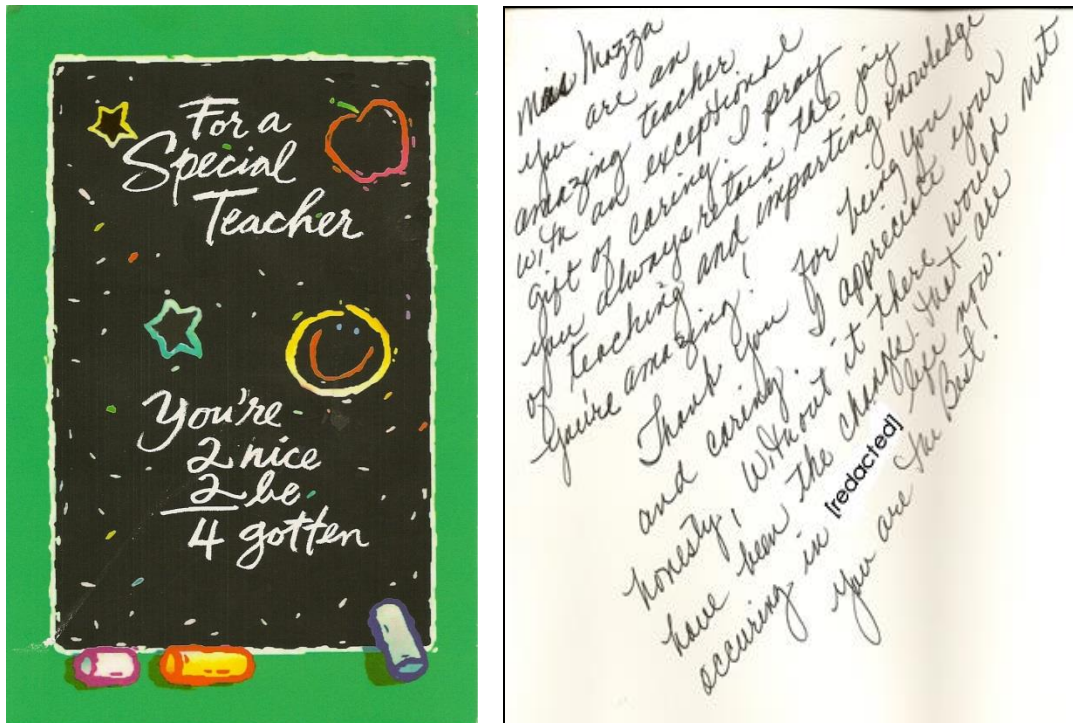 For a
Special
Teacher
You're
2 nice
2 be
4 gotten
Miss Mozza
you are an
amazing teacher
with an exceptional
gift of caring. I pray
you always retain the joy
of teaching and imparting knowledge
You're amazing!
Thank you for being you
and caring. I appreciate your
honesty, without it there would not
have been the changes that are
occuring in [redacted] life now.
You are the Best!